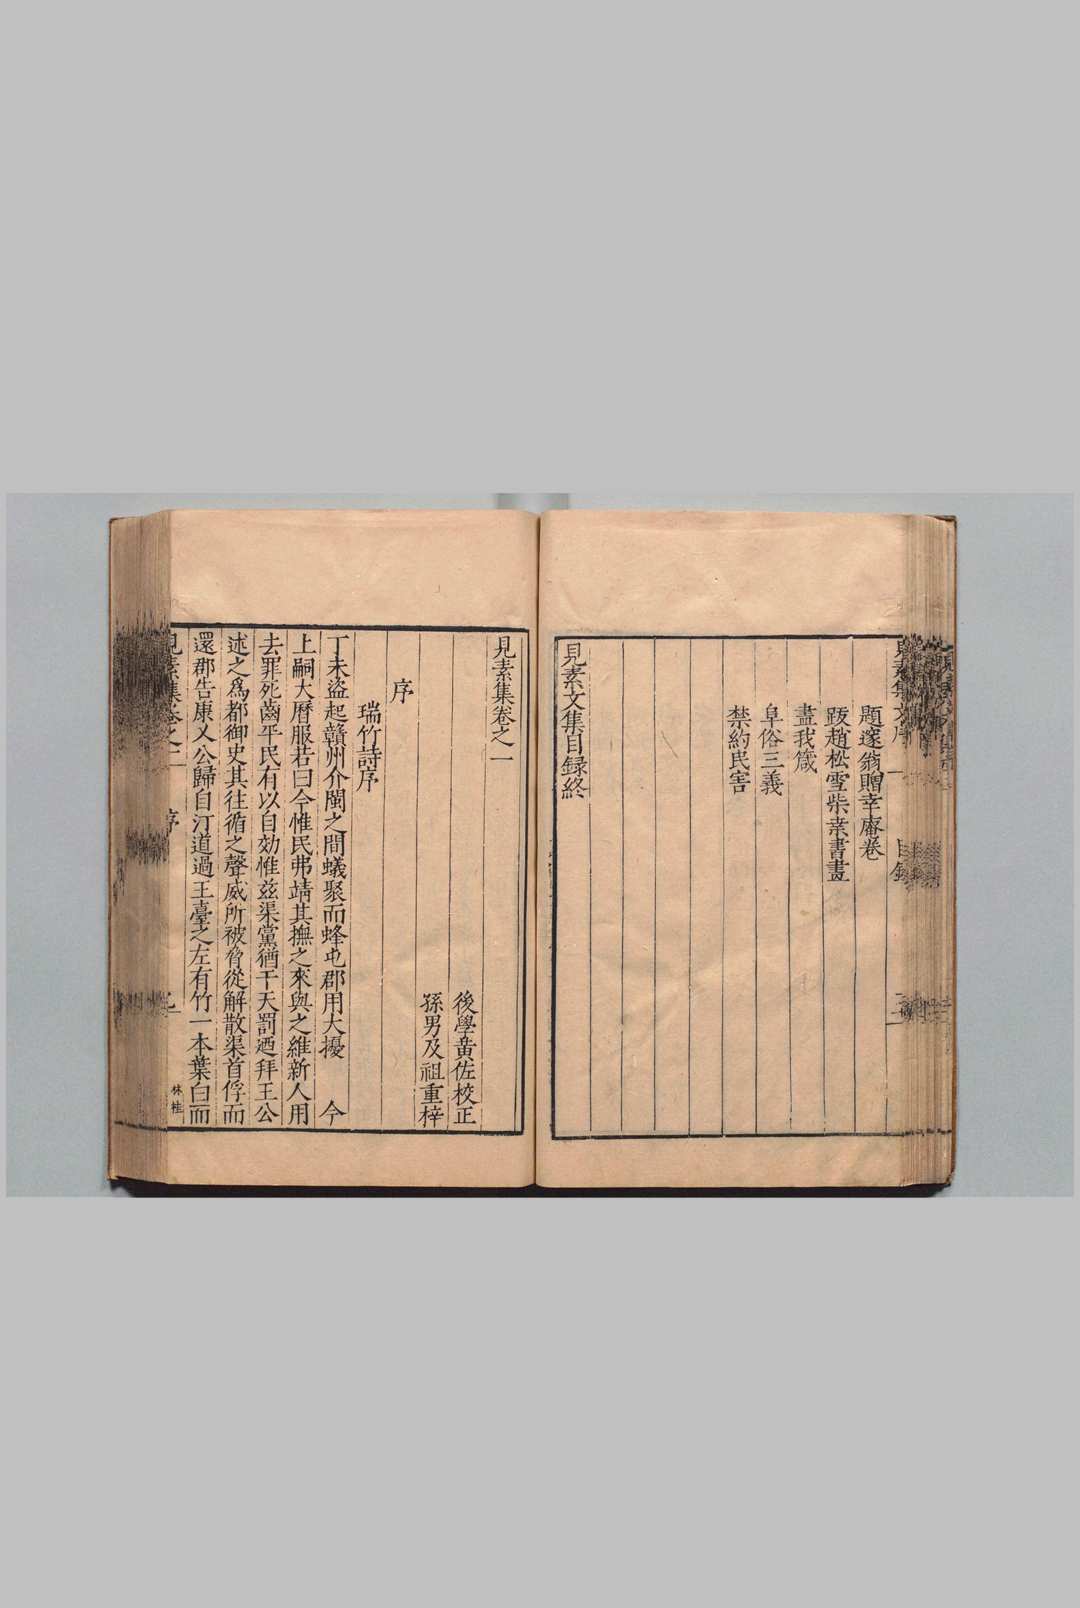 題邃翁贈幸菴卷
跋趙松雪柴桑書畫
盡我箴
阜俗三義
禁約民害
見素文集目録終
見素集卷之一
後學黃佐校正
孫男及祖重梓
序
瑞竹詩序
丁未盜起贛州介閩之間蟻聚而蜂屯郡用大擾　今
上嗣大曆服若曰今惟民弗靖其撫之來與之維新人用
去罪死齒平民有以自効惟茲渠黨猶干天罰廼拜王公
述之為都御史其往循之聲威所被脅從解散渠首俘而
還郡告康乂公歸自汀道過王臺之左有竹一本葉白而
見素集卷之一
序
林桂